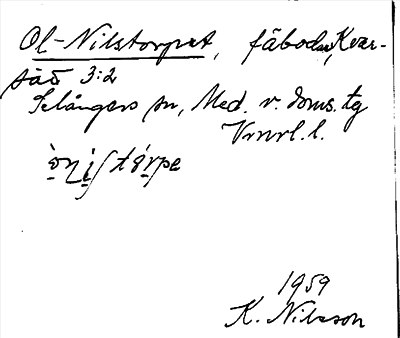 Ol-Nilstorpet, fäbodar, Kvar-
såd 3:2
Selångers sn, Med. v. doms. tg
Vrnrl. l.
1959
K. Nilsson